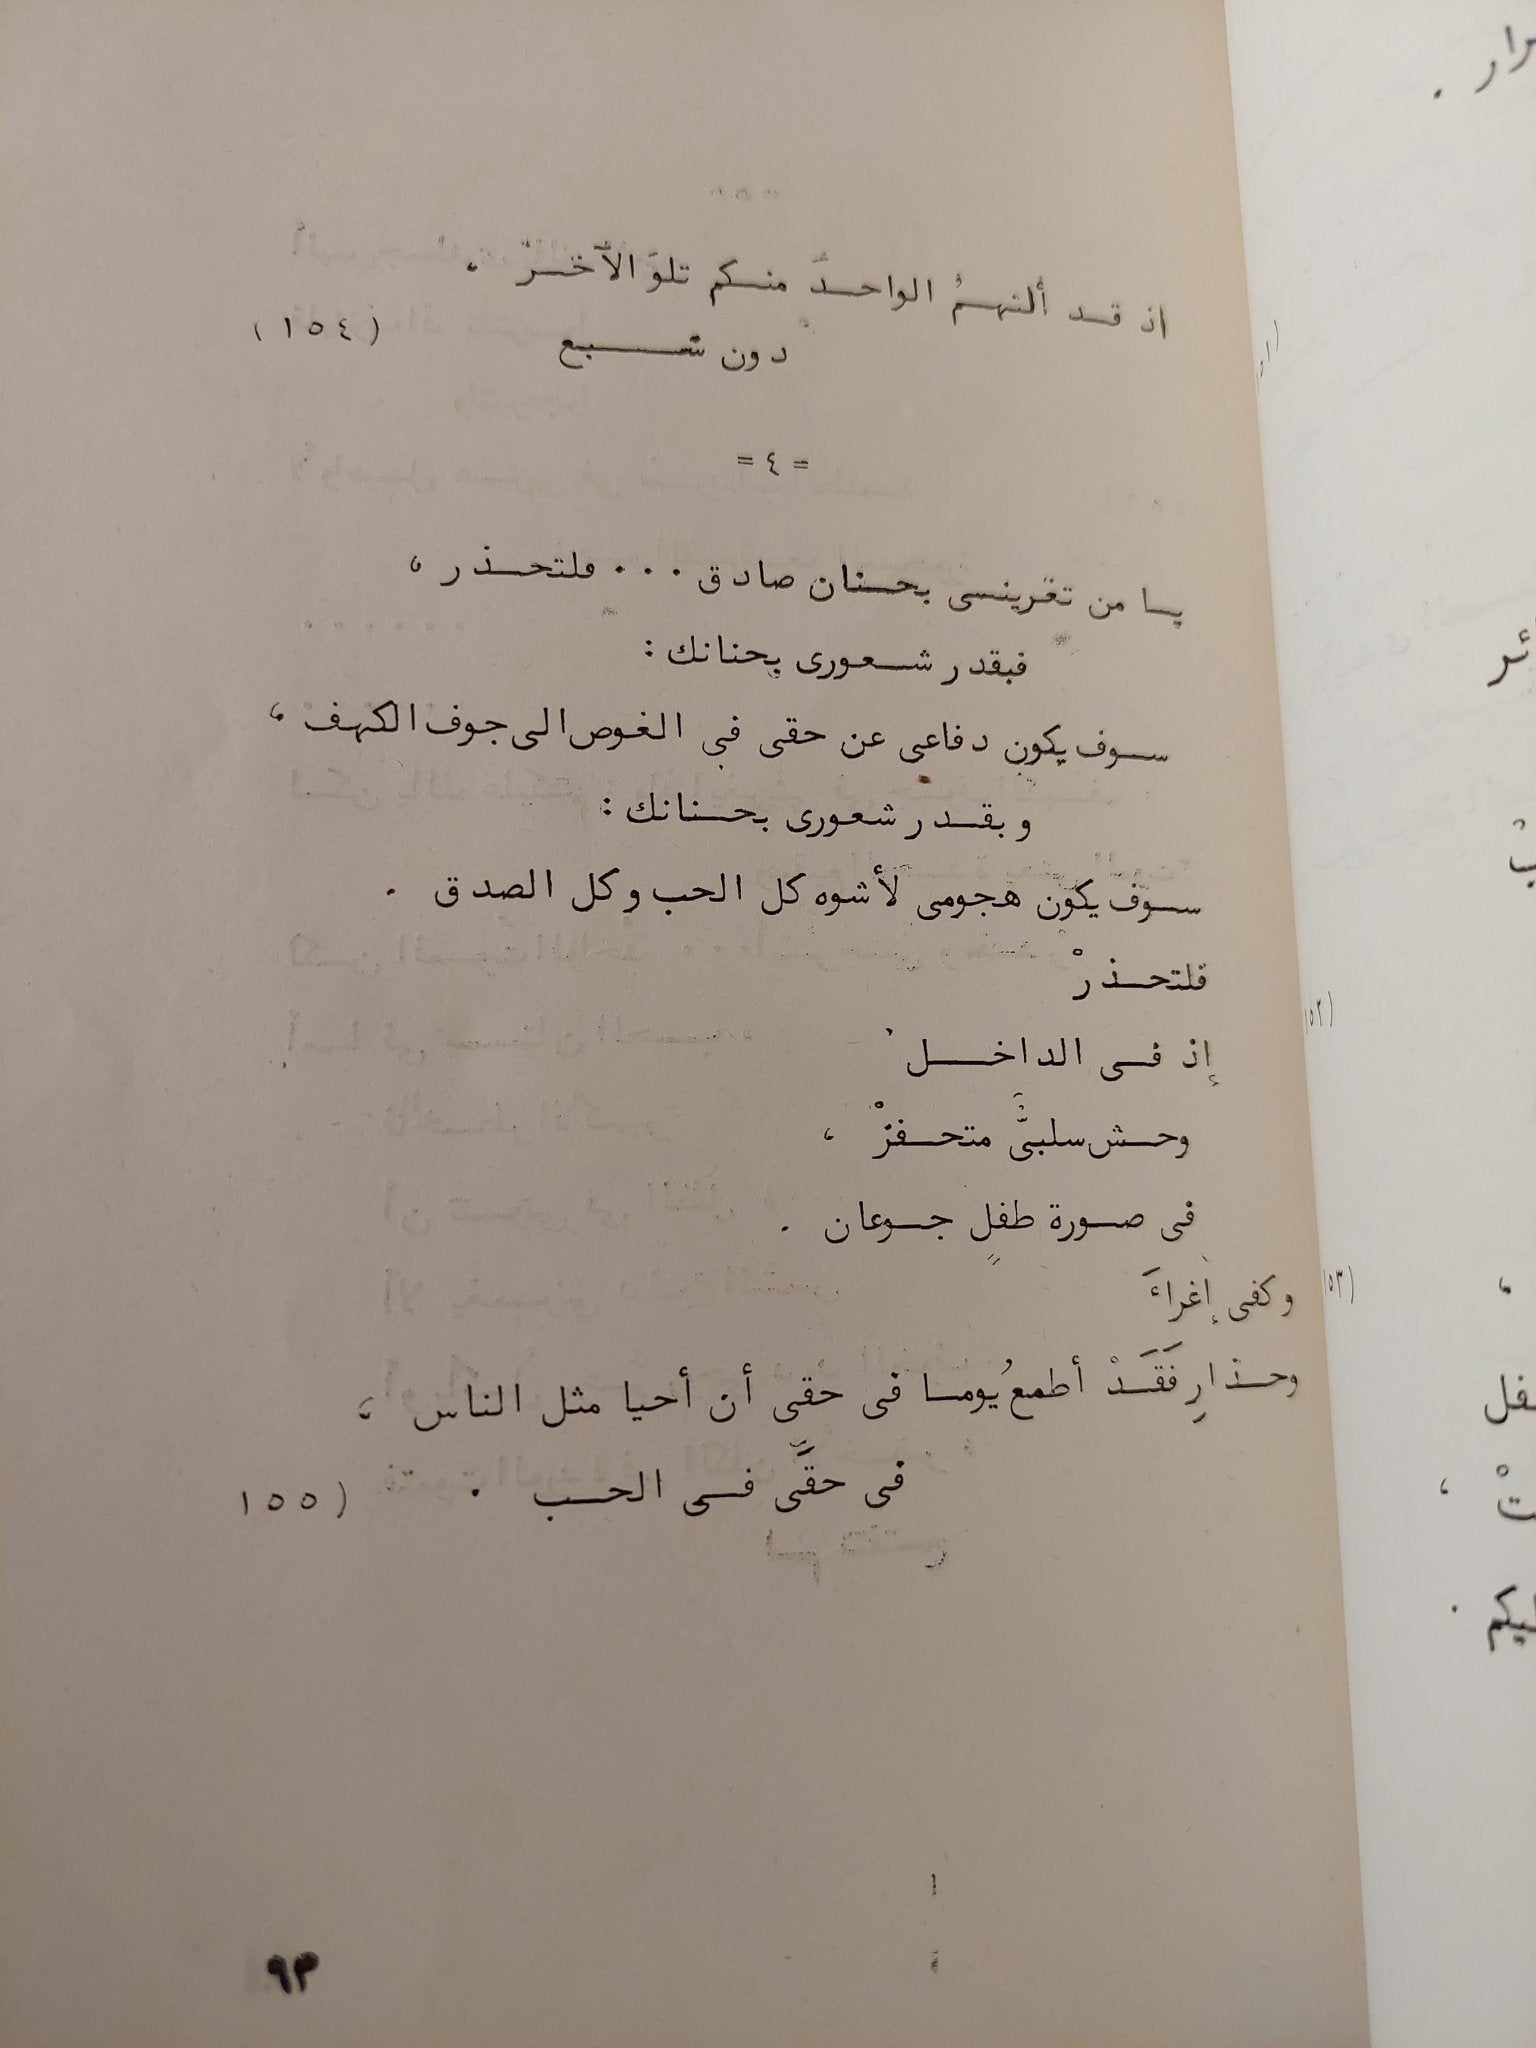 اذ قد ألتهمُ الواحدَ منكم تلوَ الآخَرْ .
دون شبع (١٥٤)
= ٤ =
يا من تغرينى بحنان صادق ... فلتحذر ،
فبقدر شعورى بحنانك :
سوف يكون دفاعى عن حقى فى الغوص الى جوف الكهف ،
وبقدر شعورى بحنانك :
سوف يكون هجومى لأشوه كل الحب وكل الصدق .
فلتحذرْ
إذ فى الداخل
وحش سلبىٌّ متحفزْ ،
فى صورة طفلٍ جوعان .
وكفى إغراءَ
وحذارِ فَقَدْ أطمعُ يوما فى حقى أن أحيا مثل الناس ،
فى حقّى فى الحب . (١٥٥
٩٣
(١٥٢
(١٥٣
فل